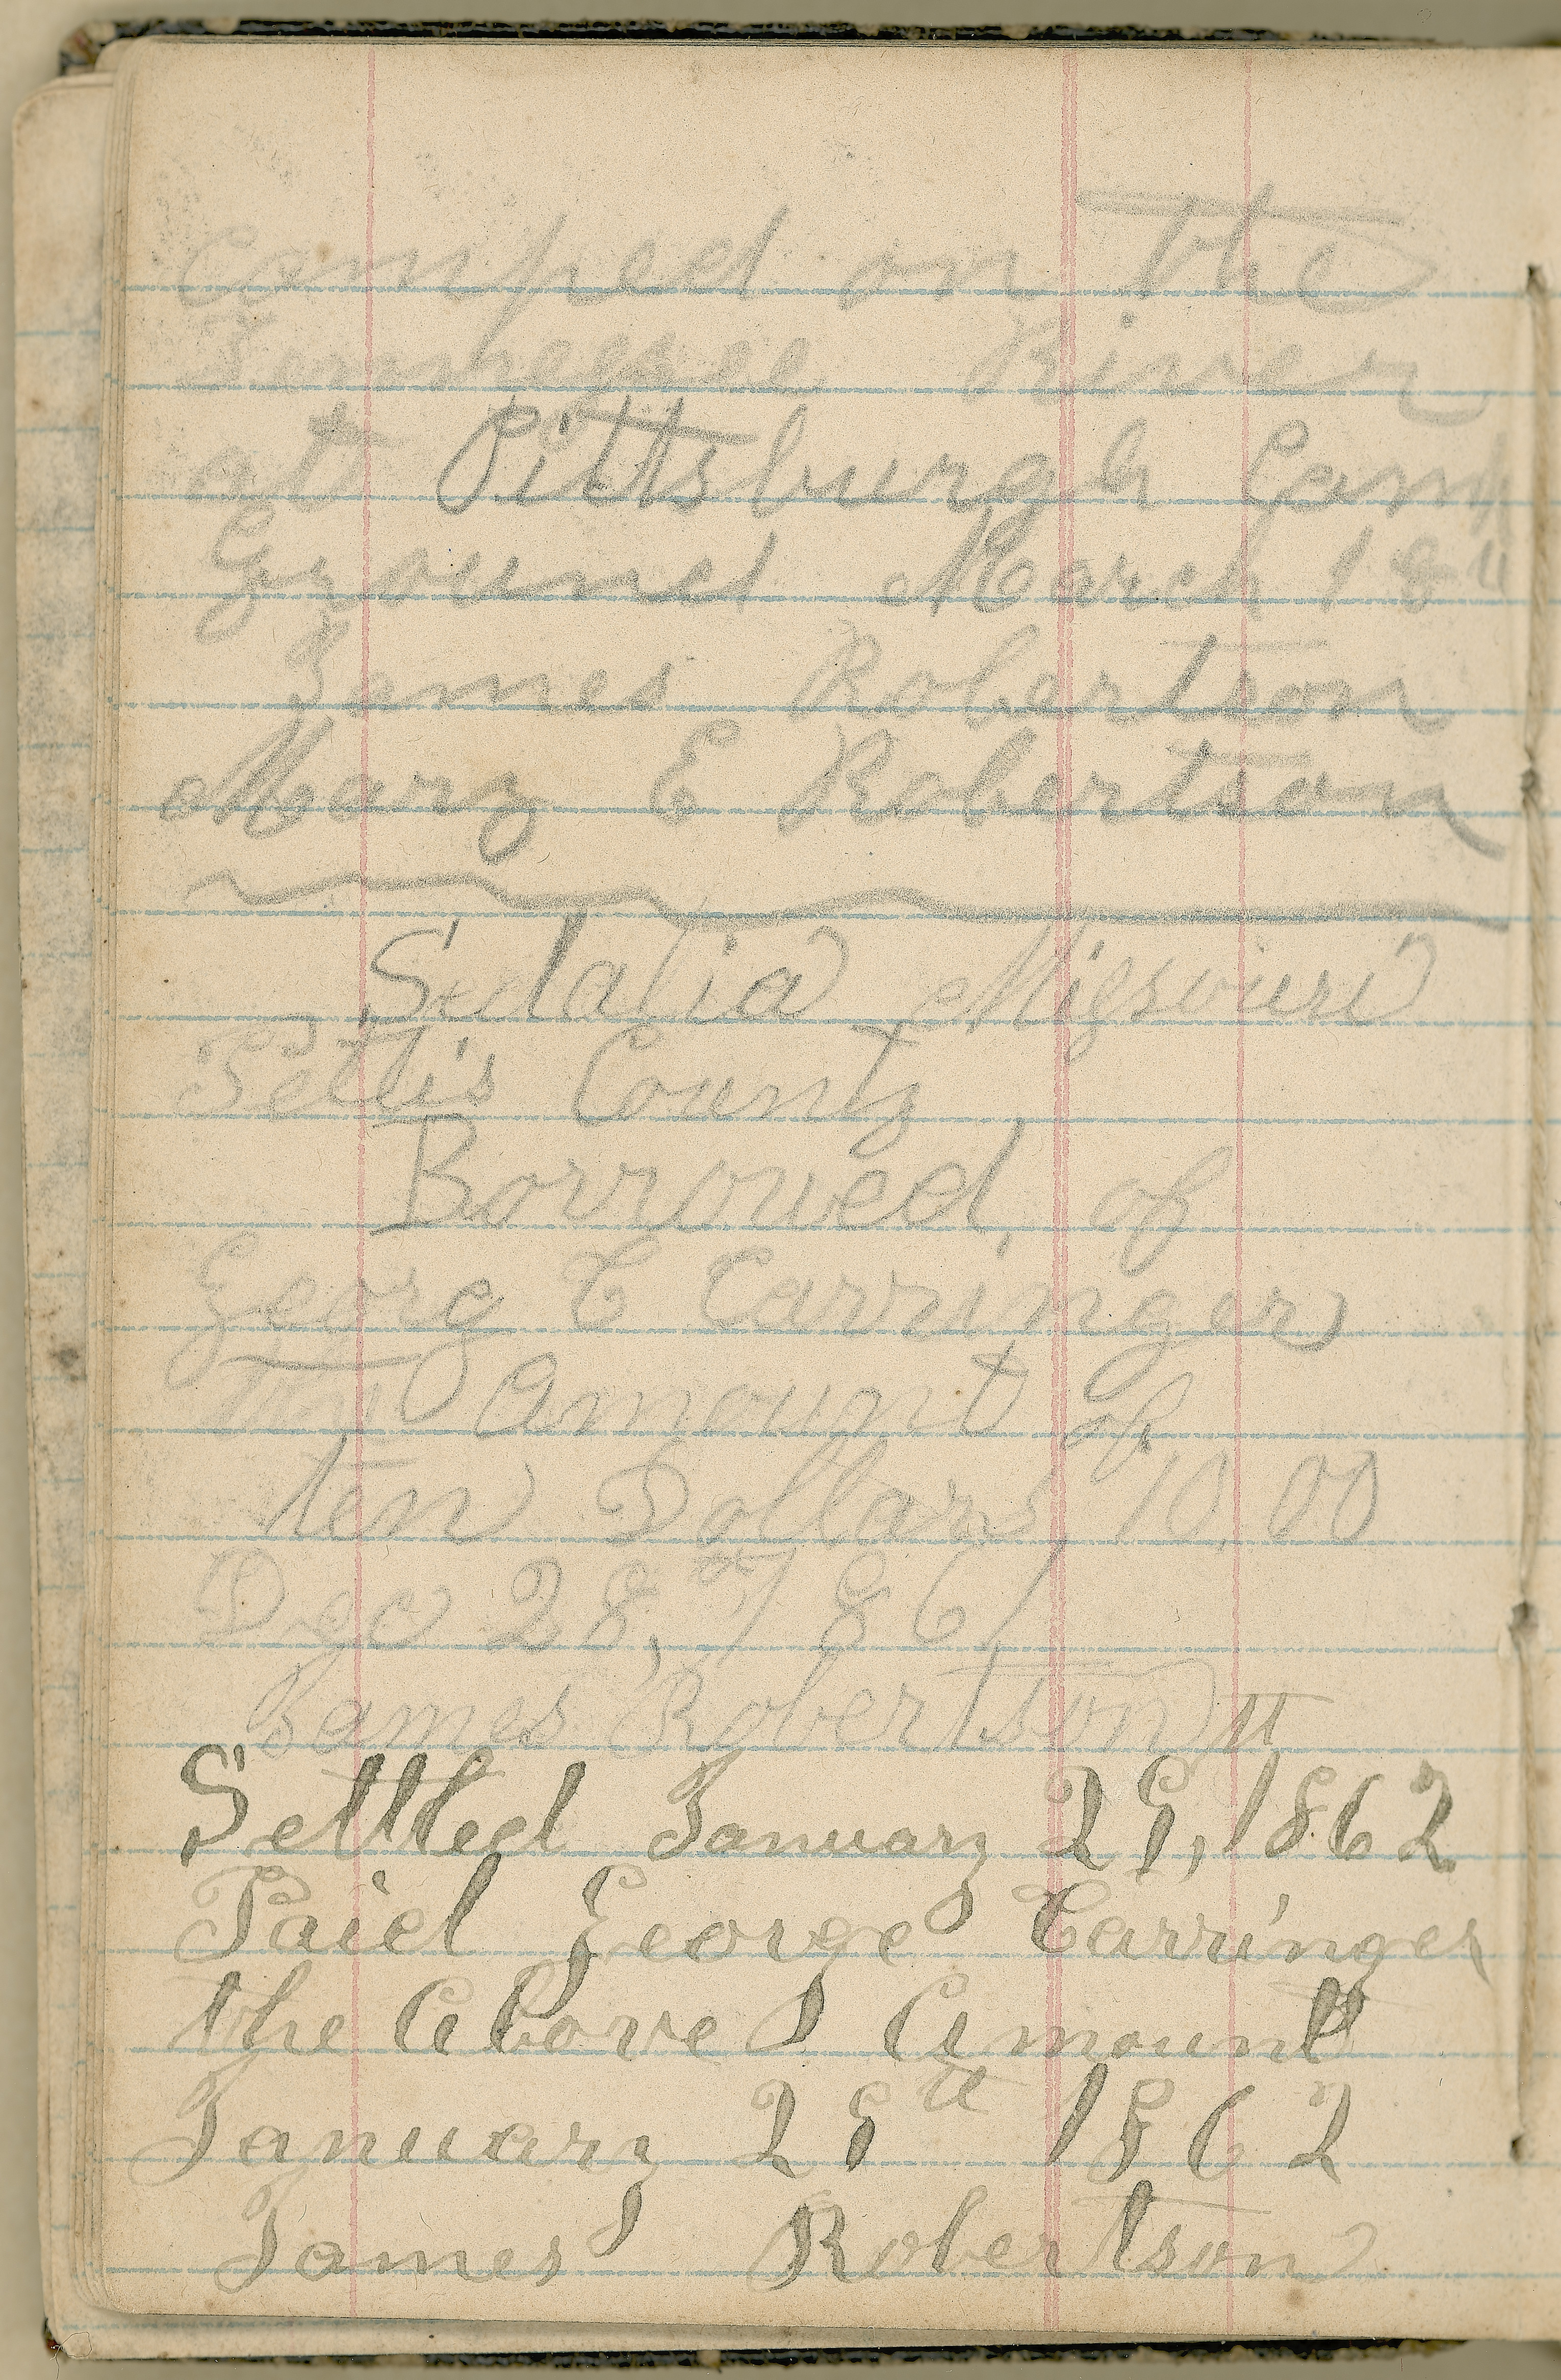 Camped on the
Tennessee River
at Pittsburgh Camp
Ground March 18"
James Robertson
Mary E Robertson
Sedalia Missouri
Pettis County
Borrowed of
Georg C Carringer
the Amount of
ten Dollars 10.00
Dec 28, 1861
James Robertson
Settled January 29, 1862
Paid George Carringer
the Above Amount
January 29th 1862
James Robertson